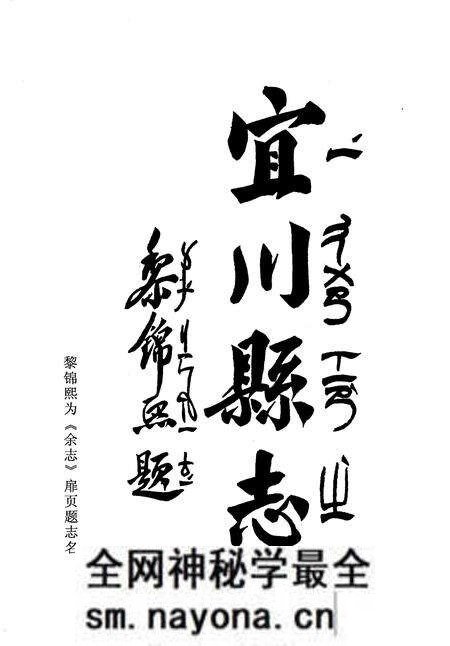 宜川縣志
黎錦熙題
黎锦熙为《余志》扉页题志名
全网神秘学最全
sm.nayona.cn